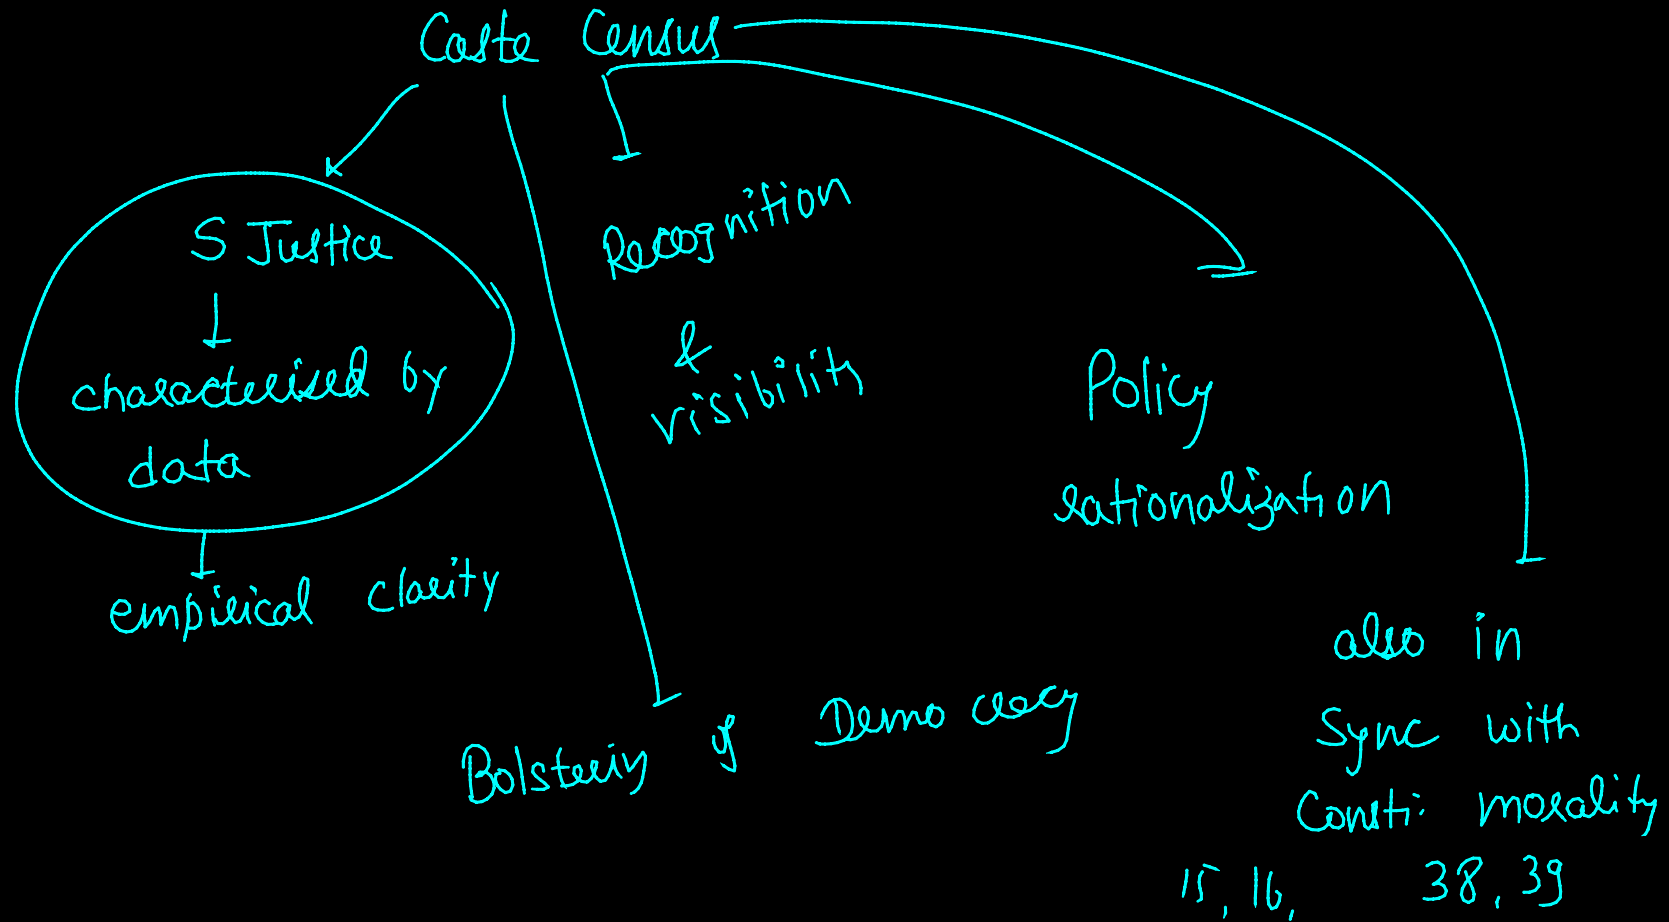 Caste Census
S Justice
characterised by
data
empirical clarity
Recognition
&
visibility
Policy
rationalization
Bolstering of Democracy
also in
Sync with
Consti. morality
15, 16, 38, 39